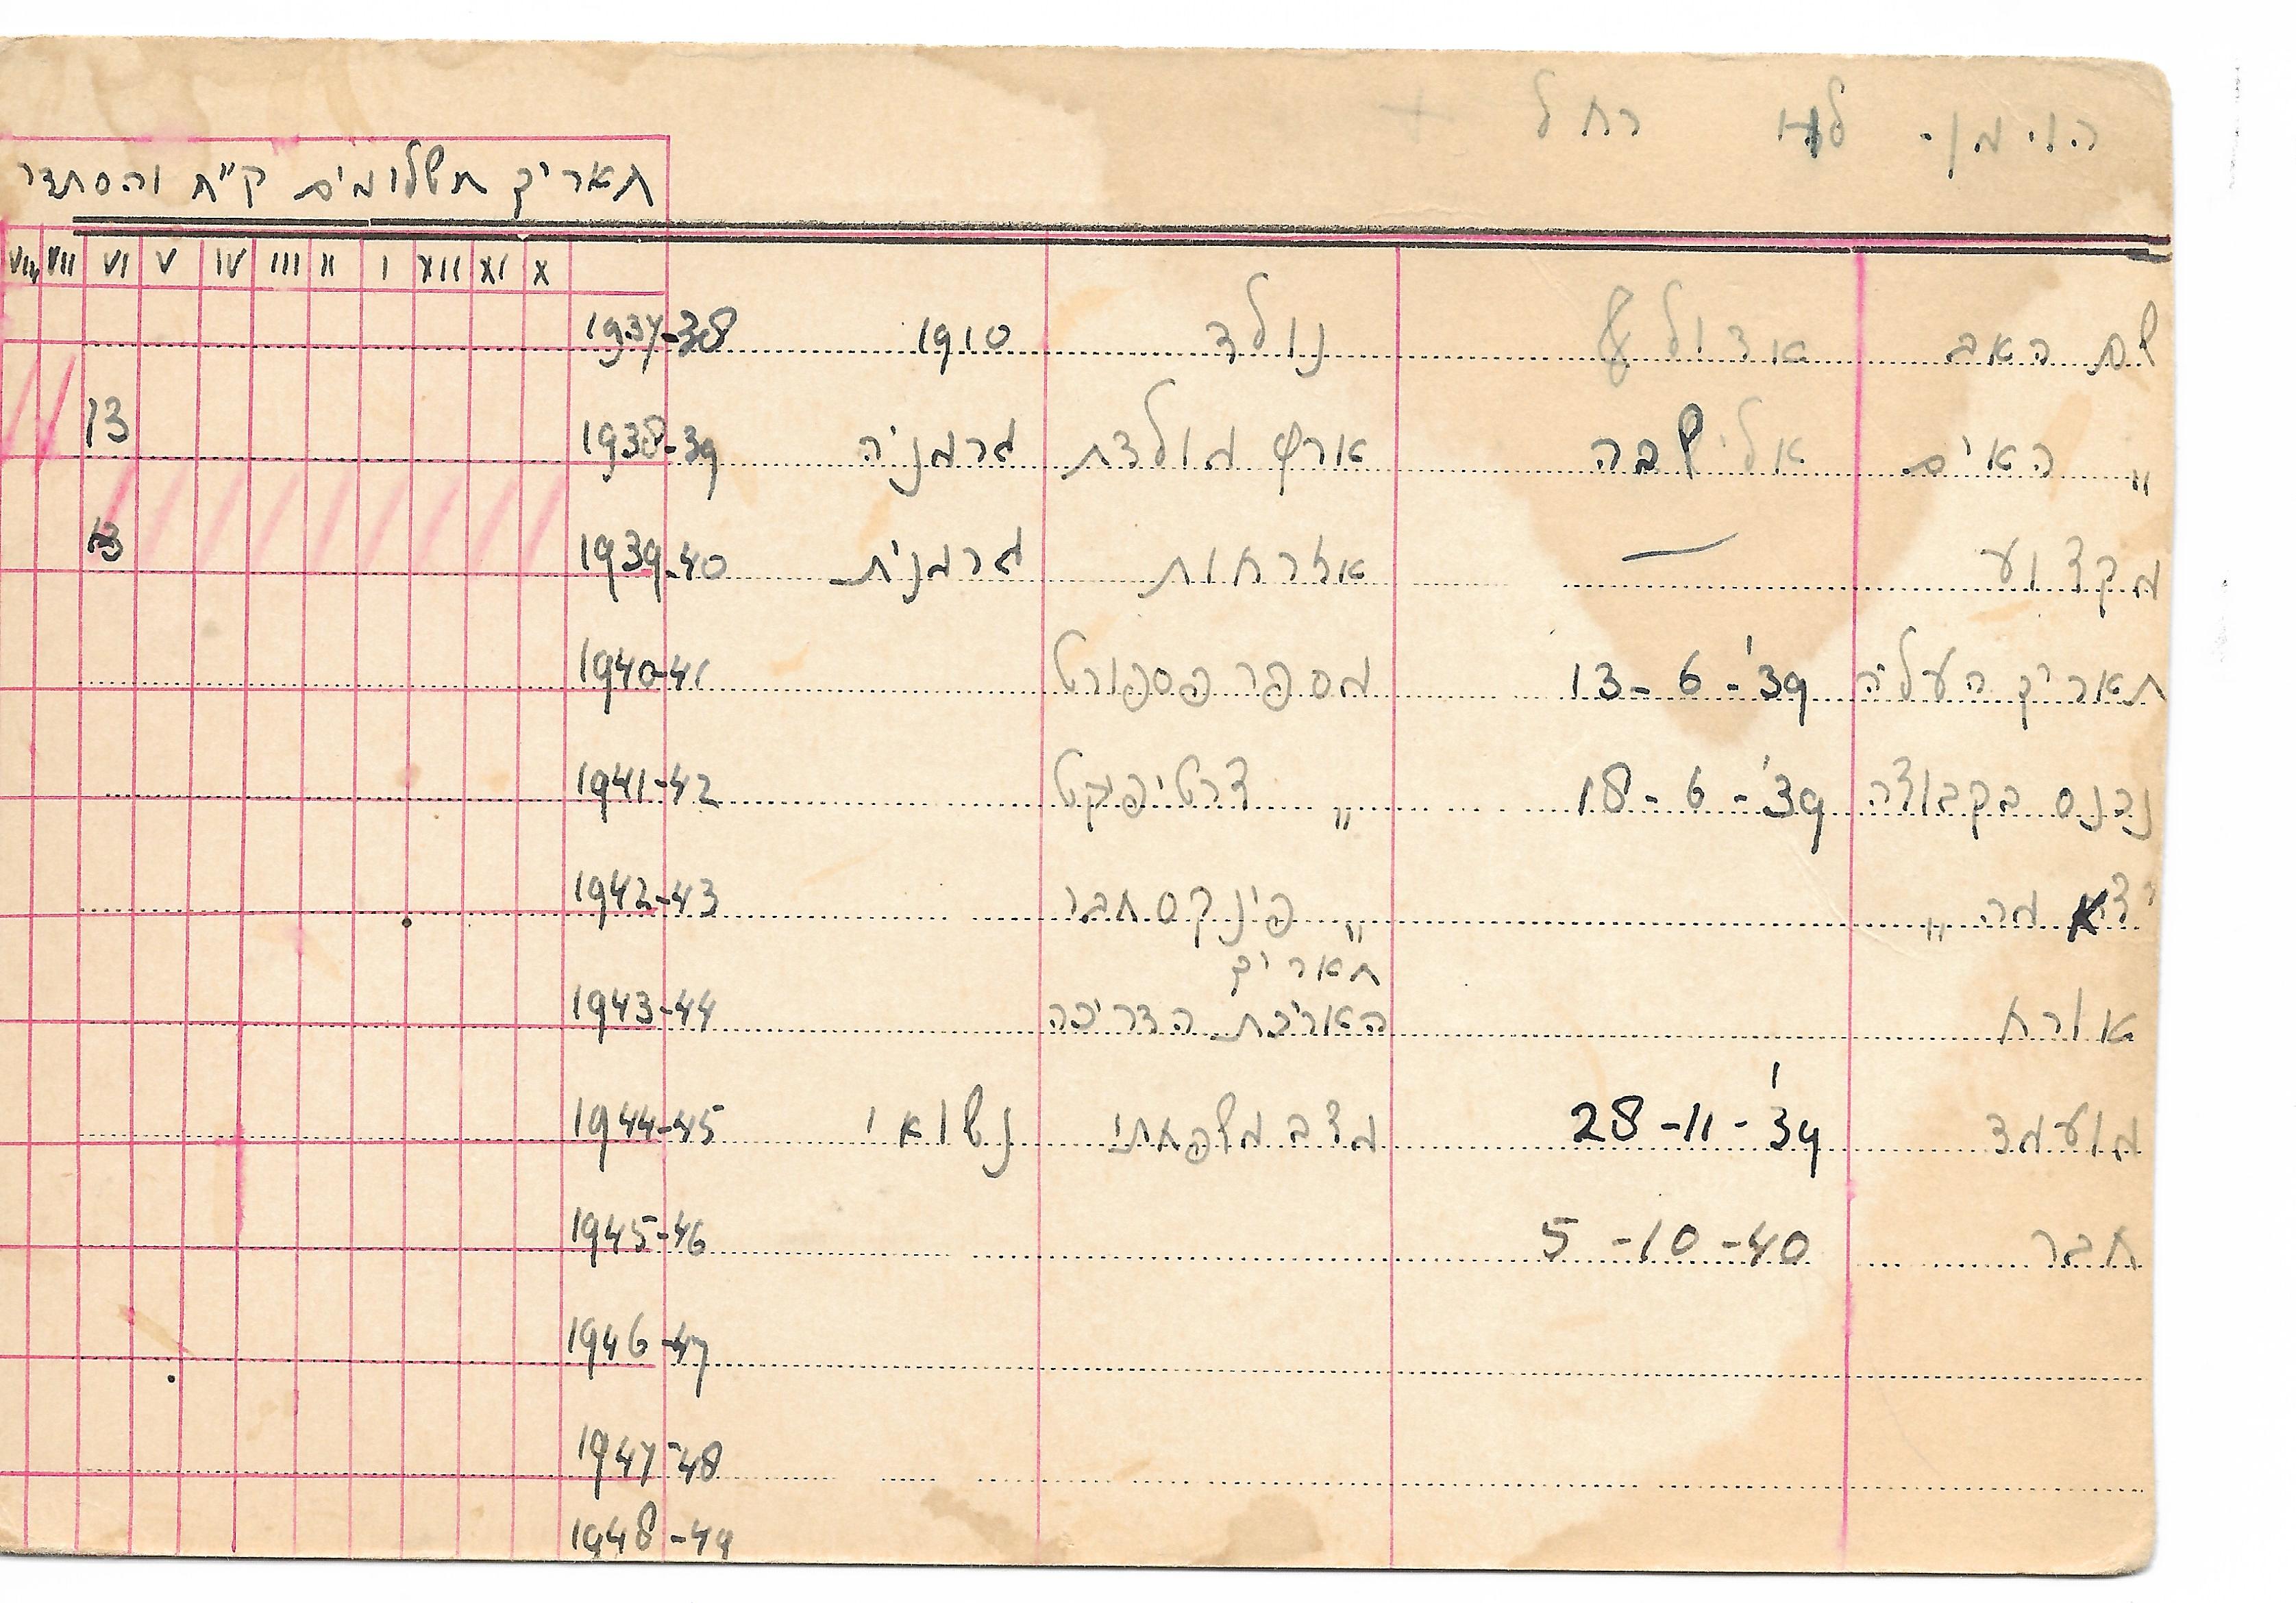 הוימן. לאה רחל +
תאריך תשלומים ק"ח והסתדר
X XI XII I II III IV V VI VII VIII
שם האב אדולף נולד 1910 1937-38
" האים אלישבה ארץ מולדת גרמניה 1938-39 13
מקצוע — אזרחות גרמנית 1939-40 13
תאריך העליה 13-6-'39 מספר פספורט 1940-41
נכנס בקבוצה 18-6-'39 " צרטיפיקט 1941-42
מה " " פינקס חבר 1942-43
תאריך
אורח הארכת הדרכה 1943-44
מועמד 28-11-'39 מצב משפחתי נשואי 1944-45
חבר 5-10-40 1945-46
1946-47
1947-48
1948-49